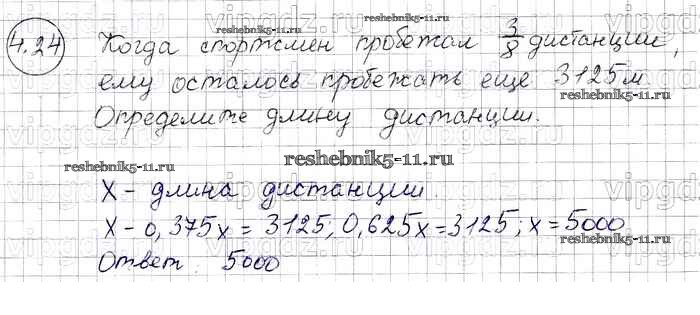 4.24
Когда спортсмен пробежал 3/8 дистанции,
ему осталось пробежать еще 3125м
Определите длину дистанции.
reshebnik5-11.ru
reshebnik5-11.ru
reshebnik5-11.ru
reshebnik5-11.ru
X - длина дистанции
X - 0,375x = 3125, 0,625x = 3125; x = 5000
reshebnik5-11.ru
reshebnik5-11.ru
Ответ: 5000